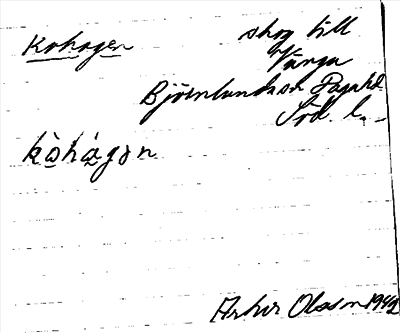 Kohagen
skog till
Vänga
Björnlundas Daga hd.
Söd. l.
kòhágən
Artur Olsson 1942